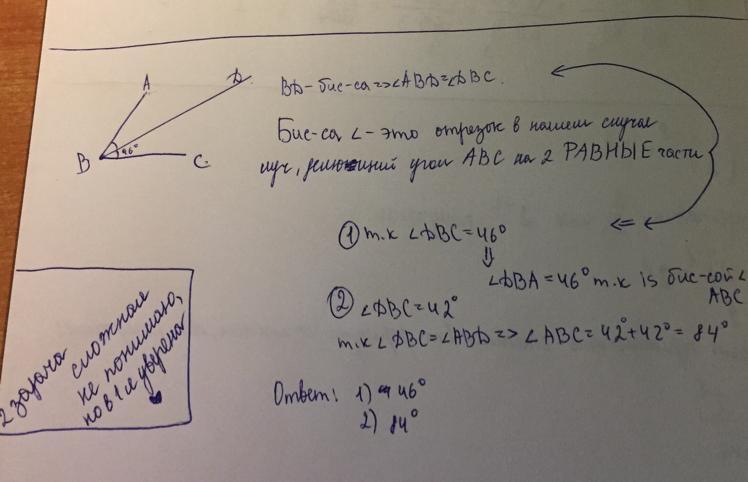 A
D
B
46°
C
BD - бис-са => ∠ABD = ∠DBC.
Бис-са ∠ - это отрезок в нашем случае
луч, делющий угол ABC на 2 РАВНЫЕ части
① т.к ∠DBC = 46°
⇓
∠DBA = 46° т.к is бис-сой ∠
ABC
② ∠DBC = 42°
т.к ∠DBC = ∠ABD => ∠ABC = 42° + 42° = 84°
Ответ: 1) 46°
2) 84°
2 задача сложная
не понимаю,
но в 1 я уверена